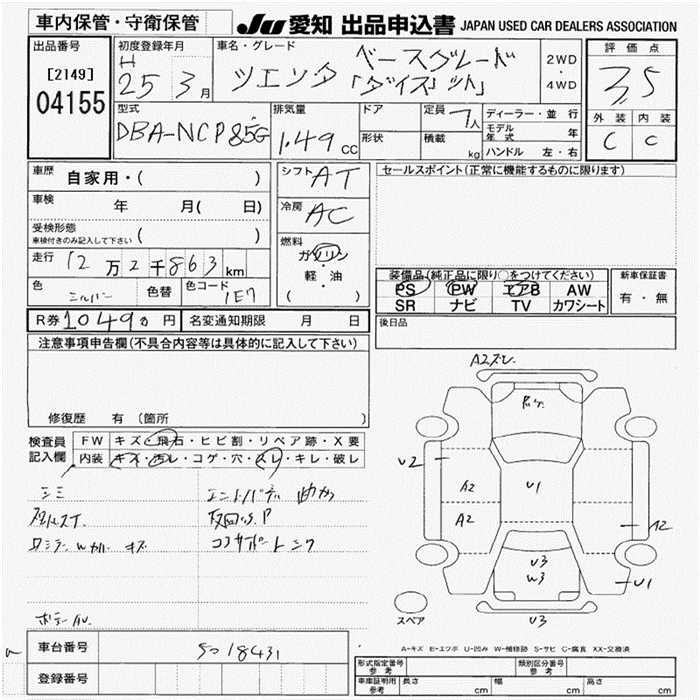 車内保管・守衛保管
JU 愛知 出品申込書 JAPAN USED CAR DEALERS ASSOCIATION
出品番号
[2149]
04155
初度登録年月
H
25 3月
車名・グレード
ベースグレード
「ダイス」
2WD
・
4WD
評価点
3.5
外装 内装
C C
型式
DBA-NCP85G
排気量
1.49 cc
ドア
形状
定員 7人
積載 kg
ディーラー・並行
モデル年式 年
ハンドル 左・右
車歴 自家用・( )
車検 年 月( 日)
受検形態
車検付きのみ記入して下さい ( )
走行 12万2千863km
色 シルバー
色替
色コード 1E7
シフト AT
冷房 AC
燃料
ガソリン
・
軽・油
( )
セールスポイント(正常に機能するものに限ります)
装備品(純正品に限り○をつけてください)
PS PW エアB AW
SR ナビ TV カワシート
新車保証書
有・無
R券 10490円
名変通知期限 月 日
後日品
注意事項申告欄(不具合内容等は具体的に記入して下さい)
修復歴 有 (箇所 )
検査員記入欄
FW キズ・飛石・ヒビ割・リペア跡・X要
内装 キズ・汚レ・コゲ・穴・スレ・キレ・破レ
シミ
キズ
U2
A2
A2
U1
U3
W3
U3
U1
スペア
A-キズ E-エクボ U-凹み W-補修跡 S-サビ C-腐食 XX-交換済
車台番号
登録番号
形式指定番号
参考
類別区分番号
参考
車庫証明用
参考
長さ cm
幅 cm
高さ cm